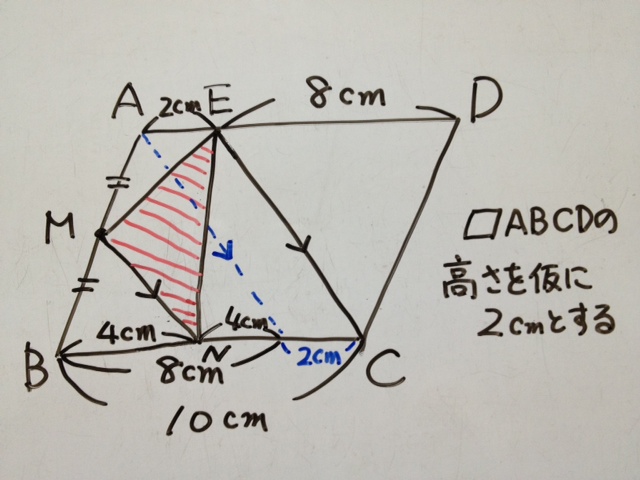 A 2cm E 8cm D
M
▱ABCDの
高さを仮に
2cmとする
4cm 4cm
B N 2cm C
8cm
10cm